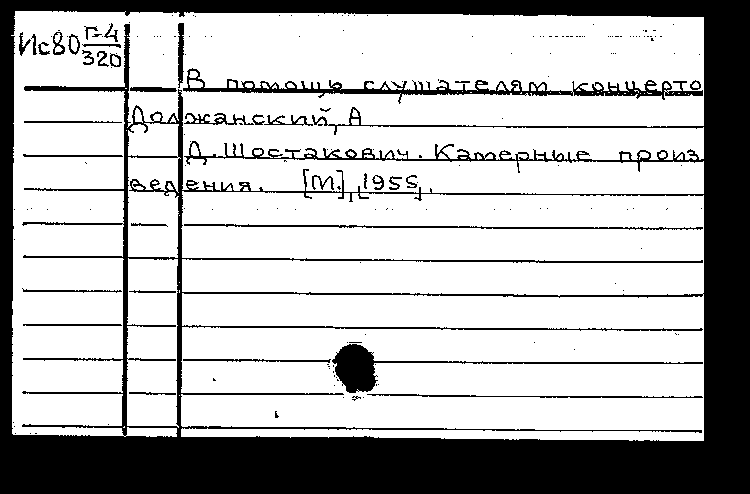 Ис80 Г-4
320
В помощь слушателям концерто
Должанский, А
Д. Шостакович. Камерные произ
ведения. [М.], [1955].